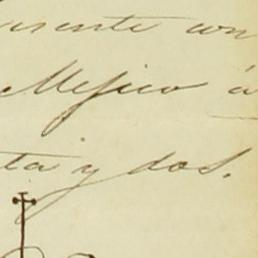 resente con
Mejico á
ta y dos.